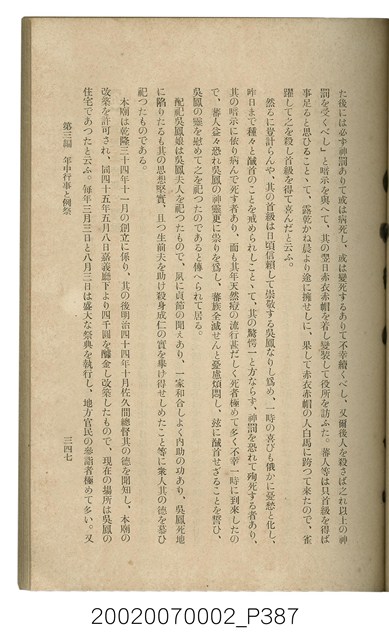 た後には必ず神罰ありて或は病死し、或は變死するありて不幸續くべし、又爾後人を殺さば之れ以上の神
罰を受くべし」と暗示を與へて、其の翌日赤衣赤帽を着し變裝して役所を訪ふた。蕃人等は只首級を得ば
事足ると思ひることゝて、露乾かぬ晨より途に擁せしに、果して赤衣赤帽の人白馬に跨つて來たので、雀
躍して之を殺し首級を得て喜んだと云ふ。
然るに豈計らんや、其の首級は日頃信賴して崇敬する吳鳳なりし爲め、一時の喜びも俄かに憂愁と化し、
昨日まで種々と馘首のことを戒められしことゝて、其の驚愕一と方ならず、神罰を恐れて殉死する者あり、
其の暗示に依り病んで死す者あり、而も其年天然痘の流行甚だしく死者極めて多く不幸一時に到來したの
で、蕃人益々恐れ吳鳳の神靈更に祟りを爲し、蕃族全滅せんと憂慮煩悶し、玆に馘首せざることを誓ひ、
吳鳳の靈を慰めて之を祀つたのであると傳へられて居る。
配祀吳鳳娘は吳鳳夫人を祀つたもので、夙に貞節の聞えあり、一家和合しよく内助の功あり、吳鳳死地
に陷りたるも其の思想堅實、且つ生前夫を助け殺身成仁の實を擧げ得せしめたこと等に衆人其の德を慕ひ
祀つたものである。
本廟は乾隆三十四年十一月の創立に係り、其の後明治四十四年十月佐久間總督其の德を聞知し、本廟の
改築を許可され、同四十五年五月八日嘉義廳下より四千圓を醵金し改築したもので、現在の場所は吳鳳の
住宅であつたと云ふ。每年三月三日と八月三日は盛大な祭典を執行し、地方官民の參詣者極めて多い。又
第三編 年中行事と例祭
三四七
20020070002_P387